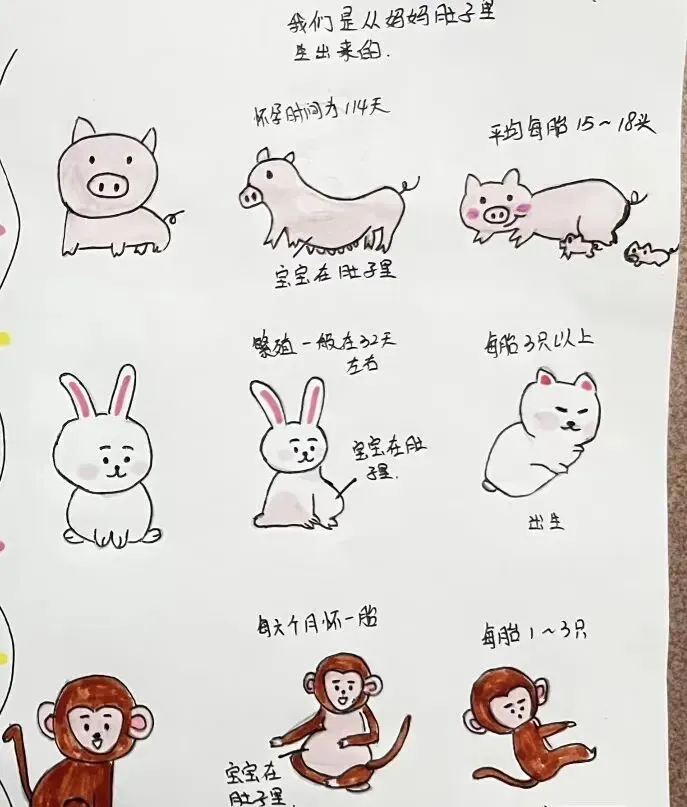 我们是从妈妈肚子里
生出来的.
怀孕时间为114天
平均每胎15~18头
宝宝在肚子里
繁殖一般在32天
左右
每胎3只以上
宝宝在肚
子里.
出生
每六个月怀一胎
每胎1~3只
宝宝在
肚子里.